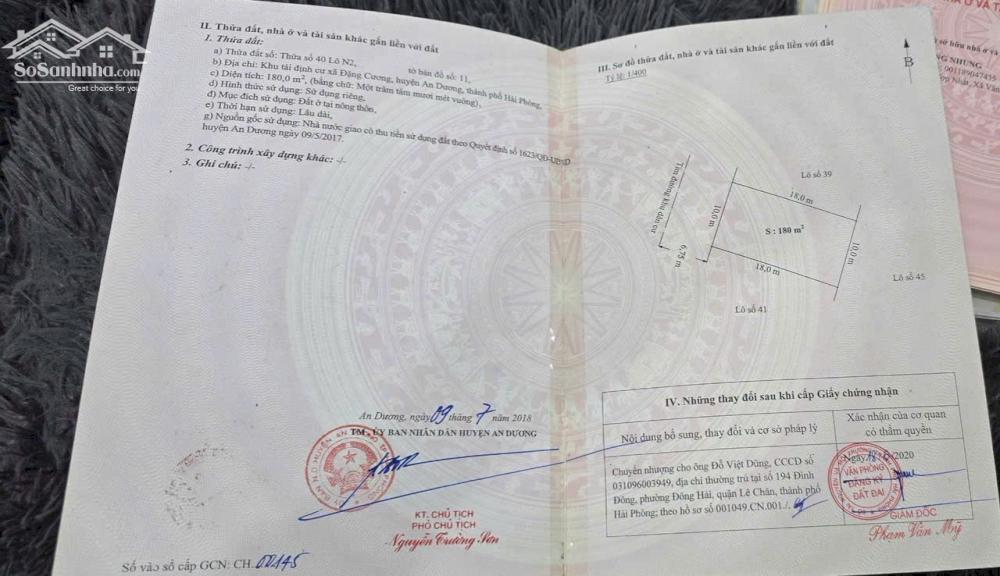 SoSanhnha.com
Great choice for you
II. Thửa đất, nhà ở và tài sản khác gắn liền với đất
1. Thửa đất:
a) Thửa đất số: Thửa số 40 Lô N2, tờ bản đồ số: 11,
b) Địa chỉ: Khu tái định cư xã Đặng Cương, huyện An Dương, thành phố Hải Phòng,
c) Diện tích: 180,0 m², (bằng chữ: Một trăm tám mươi mét vuông),
d) Hình thức sử dụng: Sử dụng riêng,
đ) Mục đích sử dụng: Đất ở tại nông thôn,
e) Thời hạn sử dụng: Lâu dài,
g) Nguồn gốc sử dụng: Nhà nước giao có thu tiền sử dụng đất theo Quyết định số 1623/QĐ-UBND
huyện An Dương ngày 09/5/2017.
2. Công trình xây dựng khác: -/-
3. Ghi chú: -/-
An Dương, ngày 09 tháng 7 năm 2018
TM. ỦY BAN NHÂN DÂN HUYỆN AN DƯƠNG
KT. CHỦ TỊCH
PHÓ CHỦ TỊCH
Nguyễn Trường Sơn
Số vào sổ cấp GCN: CH. 00145
III. Sơ đồ thửa đất, nhà ở và tài sản khác gắn liền với đất
Tỷ lệ: 1/400
B
Lô số 39
Tim đường khu dân cư
18,0 m
10,0 m
S : 180 m²
10,0 m
6,75 m
18,0 m
Lô số 45
Lô số 41
IV. Những thay đổi sau khi cấp Giấy chứng nhận
Nội dung bổ sung, thay đổi và cơ sở pháp lý
Xác nhận của cơ quan
có thẩm quyền
Chuyển nhượng cho ông Đỗ Việt Dũng, CCCD số
031096003949, địa chỉ thường trú tại số 194 Đình
Đông, phường Đông Hải, quận Lê Chân, thành phố
Hải Phòng; theo hồ sơ số 001049.CN.001./.
Ngày 2020
VĂN PHÒNG
ĐĂNG KÝ
ĐẤT ĐAI
GIÁM ĐỐC
Phạm Văn Mỹ
NG NHUNG
001189047435